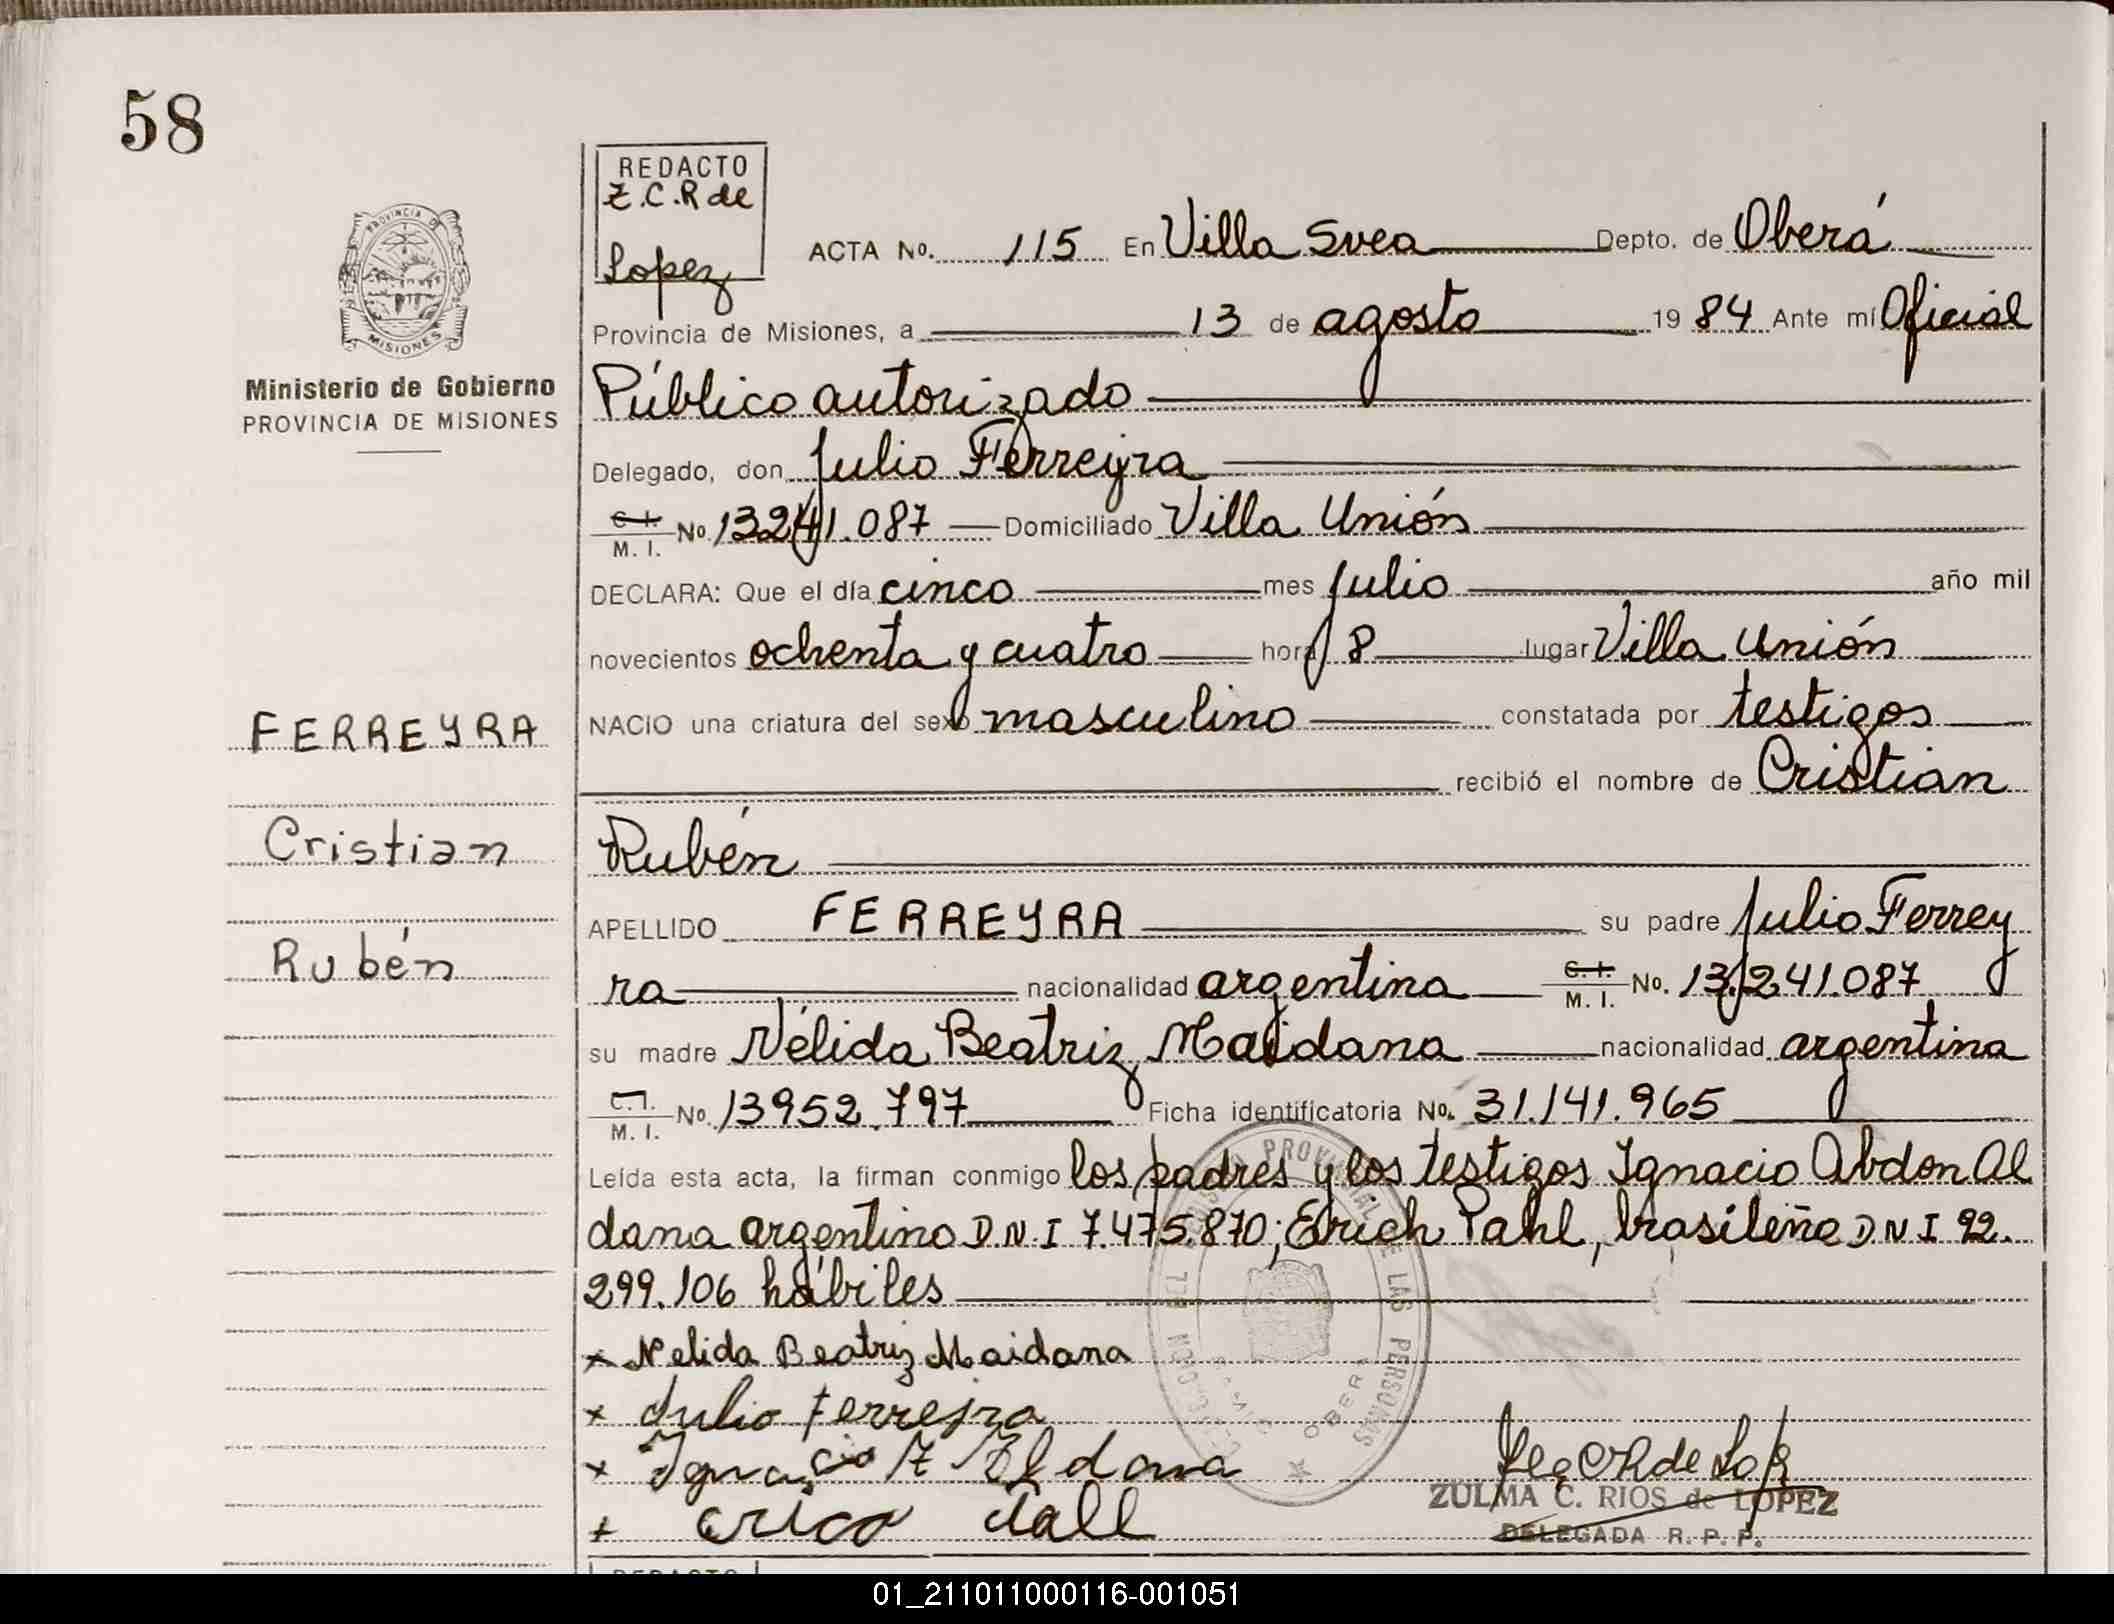 58
REDACTO
Z.C.R de
Lopez
PROVINCIA DE
MISIONES
Ministerio de Gobierno
PROVINCIA DE MISIONES
ACTA No. 115 En Villa Svea Depto. de Oberá
Provincia de Misiones, a 13 de agosto 1984 Ante mí Oficial
Público autorizado
Delegado, don Julio Ferreyra
C.I. M. I. No. 13241.087 Domiciliado Villa Unión
DECLARA: Que el día cinco mes Julio año mil
novecientos ochenta y cuatro hora 8 lugar Villa Unión
FERREYRA
NACIO una criatura del sexo masculino constatada por testigos
recibió el nombre de Cristian
Cristian
Rubén
APELLIDO FERREYRA su padre Julio Ferrey
Rubén
ra nacionalidad argentina C.I. M. I. No. 13.241.087
su madre Nélida Beatriz Maidana nacionalidad argentina
C.I. M. I. No. 13952.797 Ficha identificatoria No. 31.141.965
Leída esta acta, la firman conmigo los padres y los testigos Ignacio Abdon Al
dana argentino D.N.I 7.475.870; Erich Pahl, brasileño D N I 92.
299.106 hábiles
x Nelida Beatriz Maidana
x Julio Ferreyra
x Ignacio A Aldana
x
ZULMA C. RIOS de LOPEZ
DELEGADA R. P. P.
PROVINCIAL DE LAS PERSONAS
OBERA
REDACTO
01_211011000116-001051